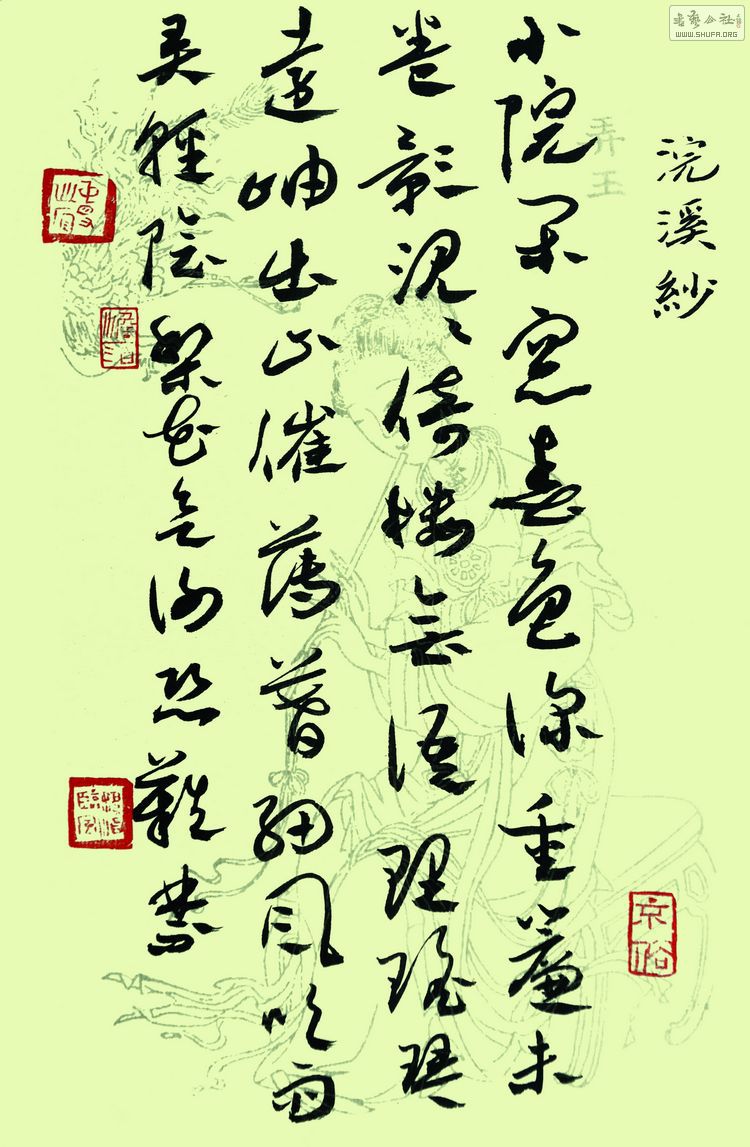 書藝公社
WWW.SHUFA.ORG
浣溪紗
小院闲窓春色深重簾未
卷影沉〻倚楼無语理瑶琴
遠岫出山催薄暮細風吹雨
弄輕陰梨花欲谢恐難禁
弄玉
京俗